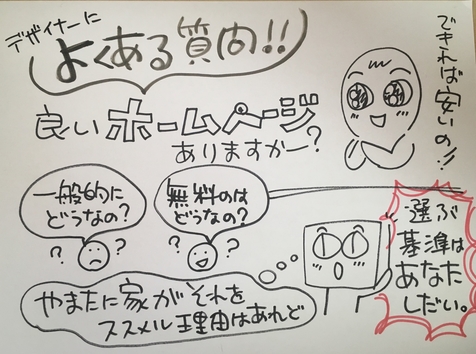 デザイナーに
よくある質問!!
良いホームページ
ありますかー?
できれば安いの!!
一般的に
どうなの?
無料のは
どうなの?
? ?
? ?
やまたに家がそれを
ススメル理由はあれど
選ぶ
基準は
あなた
しだい。